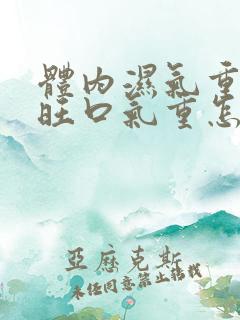 體內濕氣重
旺口氣重怎
亞歷克斯
未经同意禁止转载